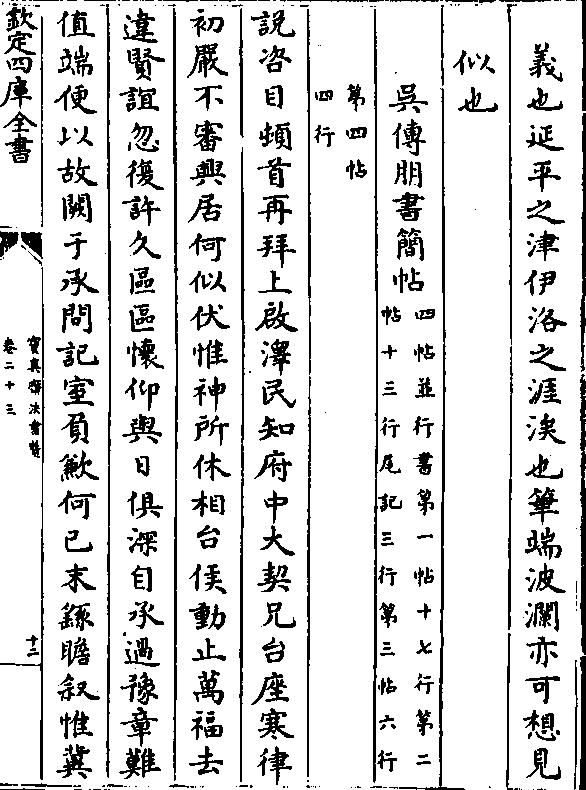 義也延平之津伊洛之涯涘也筆端波瀾亦可想見
似也
吳傅朋書簡帖
四帖並行書第一帖十七行第二
帖十三行尾記三行第三帖六行
第四帖
四行
說咨目頓首再拜上啟澤民知府中大契兄台座寒律
初嚴不審興居何似伏惟神所休相台候動止萬福去
違賢誼忽復許久區區懷仰與日俱深自承過豫章難
值端便以故闕于承問記室負歉何已末繇瞻叙惟冀
欽定四庫全書
寳真齋法書贊
卷二十三
十二